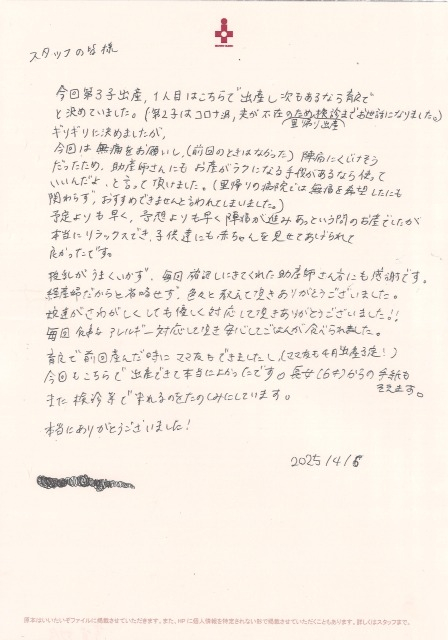 スタッフの皆様
今回第3子出産、1人目はこちらで出産し次もあるなら育良で
と決めていました。(第2子はコロナ渦、夫が不在のため検診までお世話になりました。)
里帰り出産
ギリギリに決めましたが、
今回は無痛をお願いし、(前回のときはなかった) 陣痛にくじけそう
だったため、助産師さんにも お産がラクになる手伐があるなら使って
いいんだよ、と言って頂いました。(里帰りの病院では無痛を希望したにも
関わらず、おすすめできませんと言われてしまいました。)
予定よりも早く、予想よりも早く陣痛が進み あっという間のお産でしたが
本当にリラックスでき、子供達にも赤ちゃんを見せてあげられて
良かったです。
授乳がうまくいかず、毎回確認しにきてくれた助産師さん方にも感謝です。
経産婦だからと省略せず、色々と教えて頂きありがとうございました。
娘達がさわがしくしても優しく対応して頂きありがとうございました!!
毎回食事アレルギー対応して頂き安心してごはんが食べられました。
育良で前回産んだ時にママ友もできましたし、(ママ友も4月出産予定!)
今回もこちらで出産できて本当によかったです。長女(6才)からの手紙も
添えます。
また検診等で来れるのをたのしみにしています。
本当にありがとうございました!
2025/4/6
原本はいいたいぞファイルに掲載させていただきます。また、HPに個人情報を特定されない形で掲載させていただくこともあります。詳しくはスタッフまで。